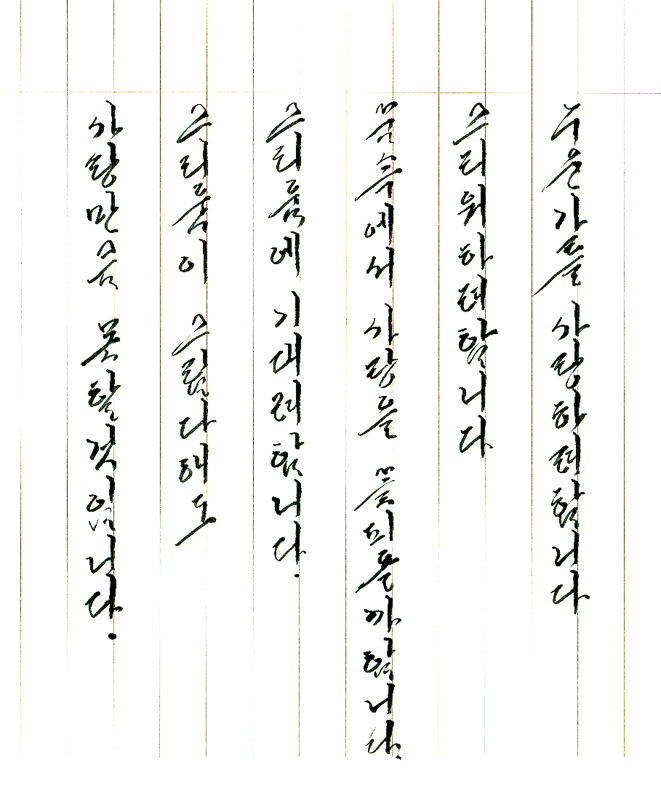 누군가를 사랑하려합니다
그리워하려합니다
꿈속에서 사랑을 꽃피울까합니다.
그리움에 기대려합니다.
그리움이 그립다해도
사랑만큼 못할것입니다.